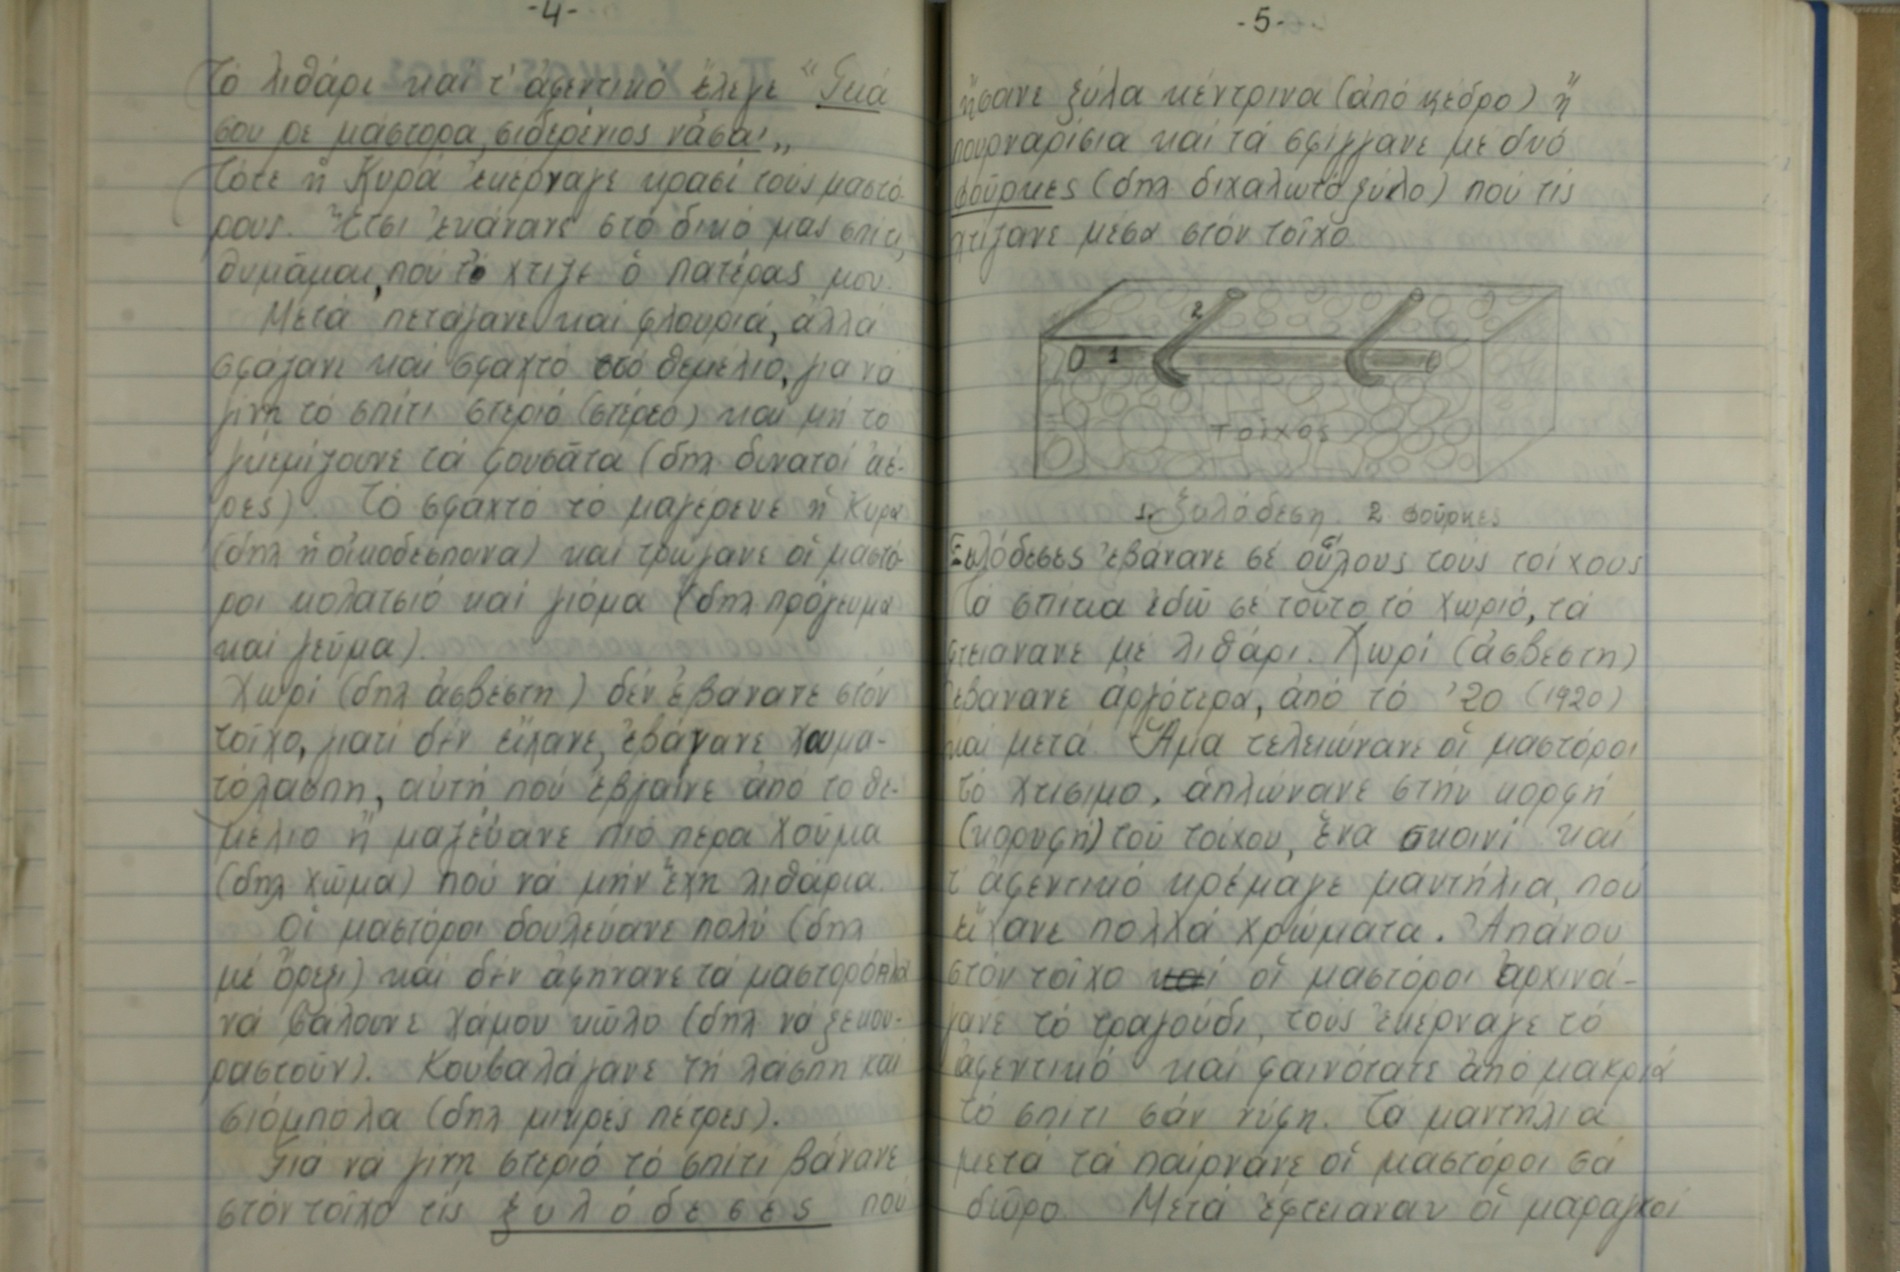 -4-
Τό λιθάρι καί τ' ἀφεντικό ἔλεγε "Γειά
σου ρε μάστορα, σιδερένιος νἆσαι"
Τότε ἡ Κυρά ἐκέρναγε κρασί τούς μαστό-
ρους. Ἔτσι ἐκάνανε στό δικό μας σπίτι,
θυμᾶμαι, πού τό χτιζε ὁ πατέρας μου.
Μετά πετάγανε καί φλουριά, ἀλλά
σφάζανε καί σφαχτό στό θεμέλιο, για νά
γίνη τό σπίτι στεριό (στέρεο) και μή το
γκεμίζουνε τά φουσᾶτα (δηλ δυνατοί ἀέ-
ρες). Τό σφαχτό τό μαγέρευε ἡ Κυρα
(δηλ ἡ οἰκοδέσποινα) καί τρώγανε οἱ μαστό-
ροι κολατσιό καί γιόμα (δηλ πρόγευμα
καί γεῦμα).
Χωρί (δηλ ἀσβέστη) δέν ἐβάνανε στόν
τοῖχο, γιατί δέν εἴχανε, ἐβάνανε χουμα-
τόλασπη, αὐτή πού ἐβγαινε ἀπό το θε-
μέλιο ἤ μαζεύανε πιό πέρα χοῦμα
(δηλ χῶμα) πού νά μήν ἔχη λιθάρια.
Οἱ μαστόροι δουλεύανε πολύ (δηλ
μέ ὄρεξι) καί δέν ἀφήνανε τά μαστορόπλα
νά βάλουνε χάμου κῶλο (δηλ νά ξεκου-
ραστοῦν). Κουβαλάγανε τή λάσπη καί
σιόμπολα (δηλ μικρές πέτρες).
Γιά νά γίνη στεριό τό σπίτι βάνανε
στόν τοῖχο τίς ξυλόδεσές πού
-5-
ἤσανε ξύλα κέντρινα (ἀπό κέδρο) ἤ
πουρναρίσια καί τά σφίγγανε με δυό
φοῦρκες (δηλ διχαλωτό ξύλο) πού τίς
χτίζανε μέσα στόν τοῖχο
2
1
τοῖχος
1. Ξυλόδεση 2 φοῦρκες
Ξυλόδεσες ἐβάνανε σέ οὔλους τούς τοίχους
Τά σπίτια ἐδῶ σέ τοῦτο τό χωριό, τά
φτειάνανε μέ λιθάρι. Χωρί (ἀσβέστη)
ἐβάνανε ἀργότερα, ἀπό τό '20 (1920)
καί μετά. Ἅμα τελειώνανε οἱ μαστόροι
τό χτίσιμο, ἁπλώνανε στήν κορφή
(κορυφή) τοῦ τοίχου, ἕνα σκοινί καί
τ' ἀφεντικό κρέμαγε μαντήλια, πού
εἴχανε πολλά χρώματα. Ἀπάνου
στόν τοῖχο καί οἱ μαστόροι ἀρχινά-
γανε τό τραγούδι, τούς ἐκέρναγε τό
ἀφεντικό καί φαινότατε ἀπό μακριά
τό σπίτι σάν νύφη. Τά μαντήλια
μετά τά παίρνανε οἱ μαστόροι σά
δῶρο. Μετά ἐφτειαναν οἱ μαραγκοί